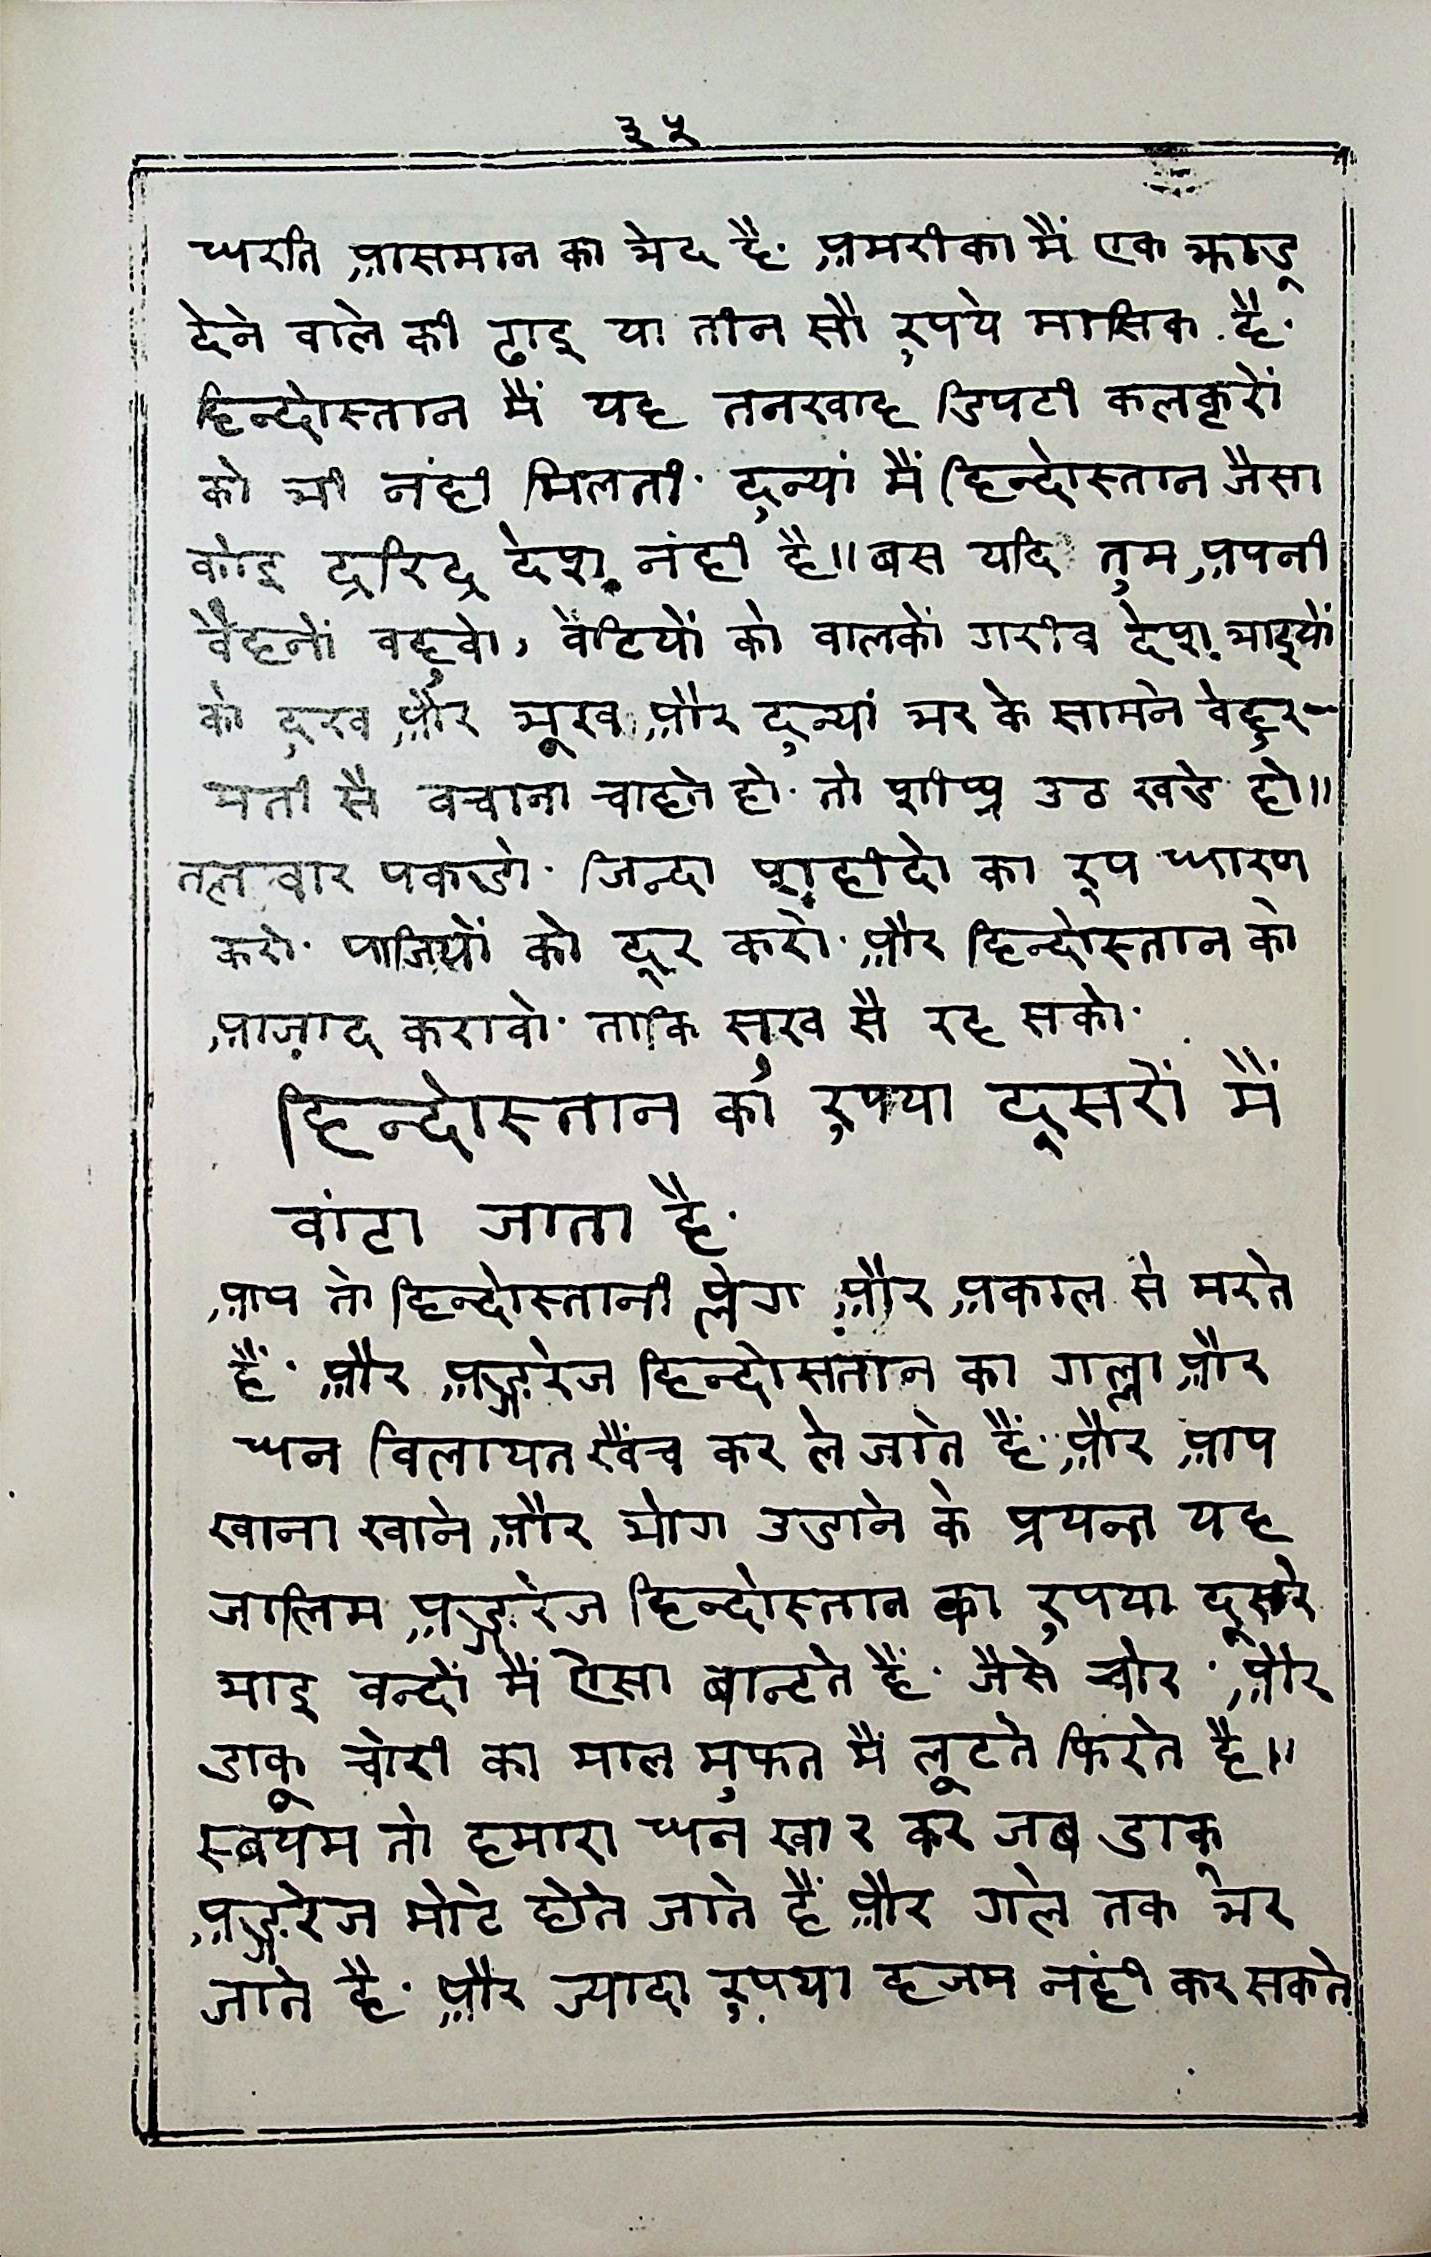 ३५
धरति आसमान का भेद है· अमरीका मैं एक झाडू
देने वाले की ढाइ या तीन सौ रुपये मासिक है·
हिन्दोस्तान मैं यह तनखाह डिपटी कलकृरों
को भी नंही मिलती· दुन्यां मैं हिन्दोस्तान जैसा
कोइ द्ररिद्र देश नंही है॥ बस यदि तुम अपनी
वैहनों वहुवो, वेटियों को वालकों गरीव देश भाइयों
को दुख और भूख और दुन्यां भर के सामने वेहुर-
मती सै वचाना चाहते हो· तो शीघ्र उठ खडे हो॥
तलवार पकडो· जिन्दा शहीदो का रुप धारण
करो· पाजियों को दूर करो· और हिन्दोस्तान को
आज़ाद करावो· ताकि सुख सै रह सको·
हिन्दोस्तान का रुपया दूसरों मैं
वांटा जाता है·
आप तो हिन्दोस्तानी प्लेग और अकाल सै मरते
हैं· और अङ्गरेज हिन्दोसतान का गल्ला और
धन विलायत खैंच कर ले जाते हैं· और आप
खाना खाने और भोग उडाने के प्रयन्त यह
जालिम अङ्गरेज हिन्दोस्तान का रुपया दूसरे
भाइ वन्दों मैं ऐसा बान्टते हैं· जैसे चोर और
डाकू चोरी का माल मुफत मैं लूटते फिरते है॥
स्बयम तो हमारा धन खा २ कर जब डाकू
अङ्गरेज मोटे होते जाते हैं और गले तक भर
जाते है· और ज्यादा रुपया हजम नंही कर सकते